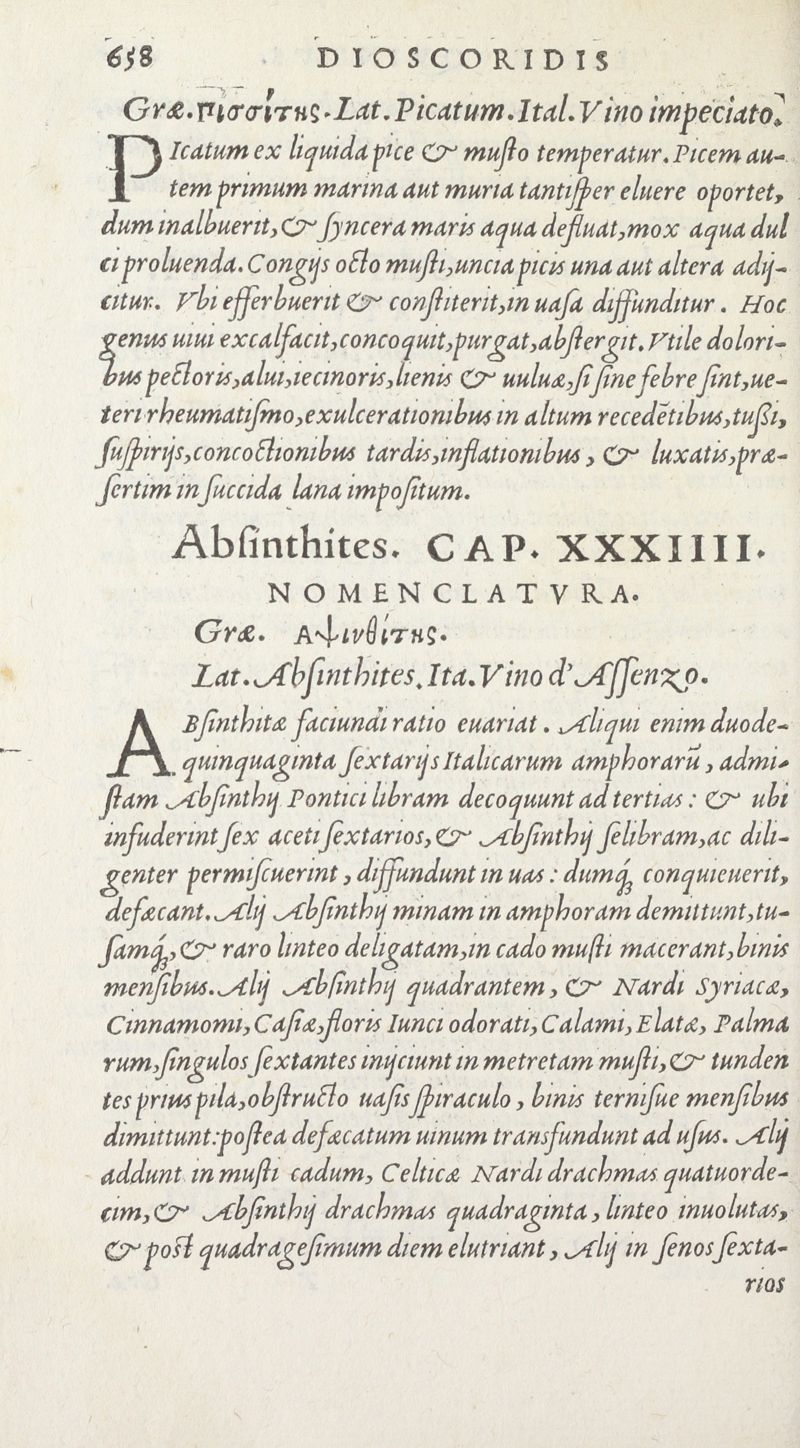 658 DIOSCORIDIS
Græ. πισσίτης. Lat. Picatum. Ital. Vino impeciato.
PIcatum ex liquida pice & muſto temperatur. Picem au-
tem primum marina aut muria tantiſper eluere oportet,
dum inalbuerit, & ſyncera maris aqua defluat, mox aqua dul
ci proluenda. Congijs octo muſti, uncia picis una aut altera adij-
citur. Vbi efferbuerit & conſtiterit, in uaſa diffunditur. Hoc
genus uiui excalfacit, concoquit, purgat, abſtergit. Vtile dolori-
bus pectoris, alui, iecinoris, lienis & uuluæ, ſi ſine febre ſint, ue-
teri rheumatiſmo, exulcerationibus in altum recedẽtibus, tuſſi,
ſuſpirijs, concoctionibus tardis, inflationibus, & luxatis, præ-
ſertim in ſuccida lana impoſitum.
Abſinthites. CAP. XXXIIII.
NOMENCLATVRA.
Græ. Αψινθίτης.
Lat. Abſinthites. Ita. Vino d'Aſſenzo.
ABſinthitæ faciundi ratio euariat. Aliqui enim duode-
quinquaginta ſextarijs Italicarum amphorarũ, admi-
ſtam Abſinthij Pontici libram decoquunt ad tertias: & ubi
infuderint ſex aceti ſextarios, & Abſinthij ſelibram, ac dili-
genter permiſcuerint, diffundunt in uas: dumq́ꝫ conquieuerit,
defæcant. Alij Abſinthij minam in amphoram demittunt, tu-
ſamq́ꝫ, & raro linteo deligatam, in cado muſti macerant, binis
menſibus. Alij Abſinthij quadrantem, & Nardi Syriacæ,
Cinnamomi, Caſiæ, floris Iunci odorati, Calami, Elatæ, Palma
rum, ſingulos ſextantes inijciunt in metretam muſti, & tunden
tes prius pila, obſtructo uaſis ſpiraculo, binis terniſue menſibus
dimittunt: poſtea defæcatum uinum transfundunt ad uſus. Alij
addunt in muſti cadum, Celticæ Nardi drachmas quatuorde-
cim, & Abſinthij drachmas quadraginta, linteo inuolutas,
& poſt quadrageſimum diem elutriant, Alij in ſenos ſexta-
rios